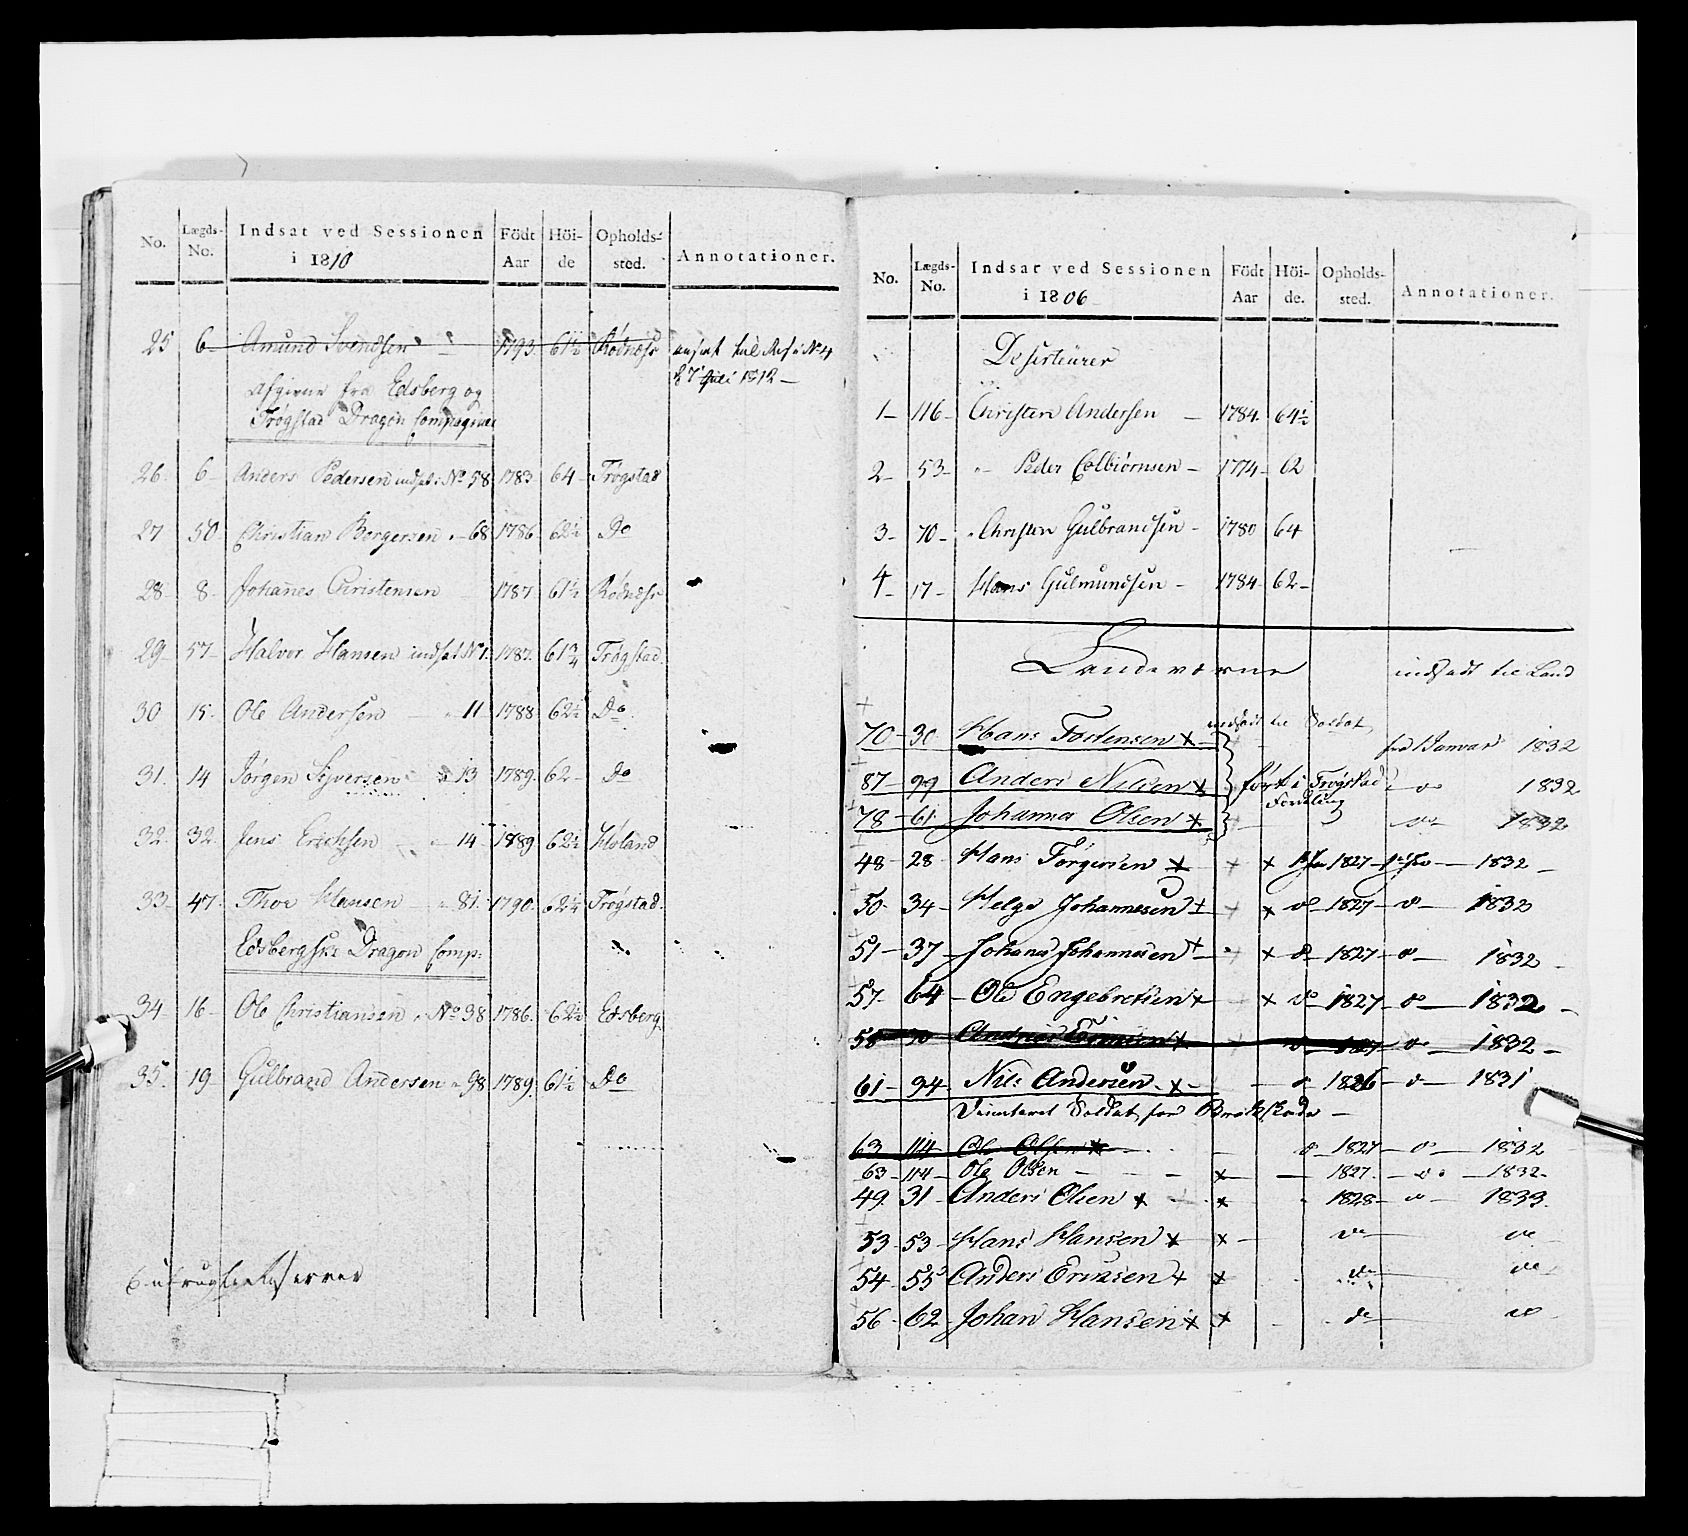 No. Lægds-No. Indsat ved Sessionen i 1810 Födt Aar Höi-de Opholds-sted. Annotationer.
25 6 Amund Svendsen 1793 61½ Rødnæss ansat til Res: No 4
d 7 Juli 1812
Afgivne fra Edsberg og
Trøgstad Dragon Compagnie
26. 6 Anders Pedersen indsat i No 58 1783 64 Trøgstad
27 50 Christian Borgersen 68 1786 62½ Do
28 8 Johanes Christensen 1787 61½ Rødnæss
29 57 Halvor Hansen indsat No 1. 1787. 61¾ Trøgstad.
30 15. Ole Andersen 11 1788 62½ Do
31. 14 Jørgen Syversen 13 1789. 62 Do
32. 32. Jens Erichsen 14 1889 62½ Høland
33. 47. Thor Hansen 81. 1790. 62¼ Trøgstad.
Edsbergske Dragon Comp:
34 16 Ole Christiansen No 38 1786. 62½ Edsberg.
35. 19 Gulbrand Andersen 98 1789. 61½ Do
No. Lægds-No. Indsat ved Sessionen i 1806 Födt Aar Höi-de. Opholds-sted. Annotationer.
Deserteurer
1 116 Christen Andersen 1784. 64½
2 53 Peder Colbiørnsen 1774 62
3 70 Christen Gulbrandsen 1780 64
4 17 Hans Gulmundsen 1784 62
Landeværne indsadt til Land
indsadt til Soldat
70 30 Hans Tostensen x fra Januar 1832
87 99 Anders Nilsen x ført i Trøgstad do 1832
78 61. Johannes Olsen x do 1832
48 28 Hans Torgersen x x 1827 1832
50 34 Helge Johannesen x x do 1827 do 1832
51 37 Johanes Johannesen x x do 1827 do 1832
57 64 Ole Engebretsen x x do 1827 do 1832
58 do 1827 do 1832
61 94 Nils Andersen x do 1826 do 1831
Soldat for
63 114 Ole Olsen x do 1827 do 1832
63 114 Ole Olsen x 1827. do 1832
49. 31 Anders Olsen x x 1828 do 1833.
53 53 Hans Hansen x x do do
54 55 Anders x x do do
56 62 Johan Hansen x x do do